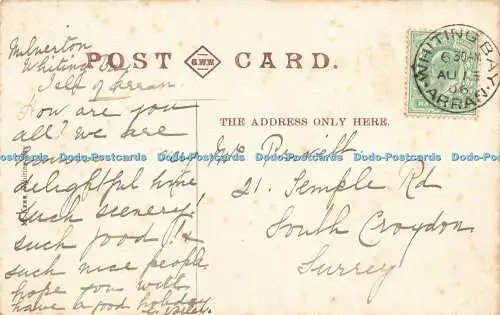 Milverton
Whiting Bay
Isle of Arran.
POST CARD.
G.W.W.
WHITING BAY
6 30AM
AU 13
06
ARRAN
How are you
all? We are
delightful time
such scenery!
such food! &
such nice people
hope you will
have a good holiday
THE ADDRESS ONLY HERE.
Dodo-Postcards Dodo-Postcards Dodo-Postcards Dodo-Postcards Dodo-Postcards
Mrs Prewett
21. Temple Rd
South Croydon
Surrey